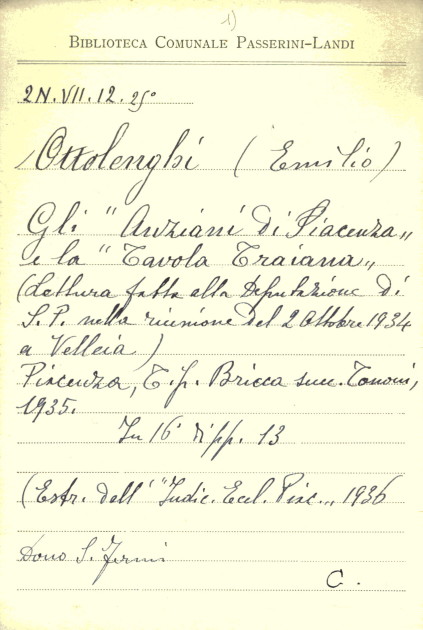 1)
BIBLIOTECA COMUNALE PASSERINI-LANDI
2N.VII.12.25°
Ottolenghi (Emilio)
Gli "Anziani di Piacenza„
e la "Tavola Traiana„
(Lettura fatta alla Deputazione di
S. P. nella riunione del 2 Ottobre 1934
a Velleia)
Piacenza, Tip. Bricca succ. Tononi,
1935.
In 16° di pp. 13
(Estr. dell' "Indic. Eccl. Piac.„ 1936
Dono S. Fermi
C.